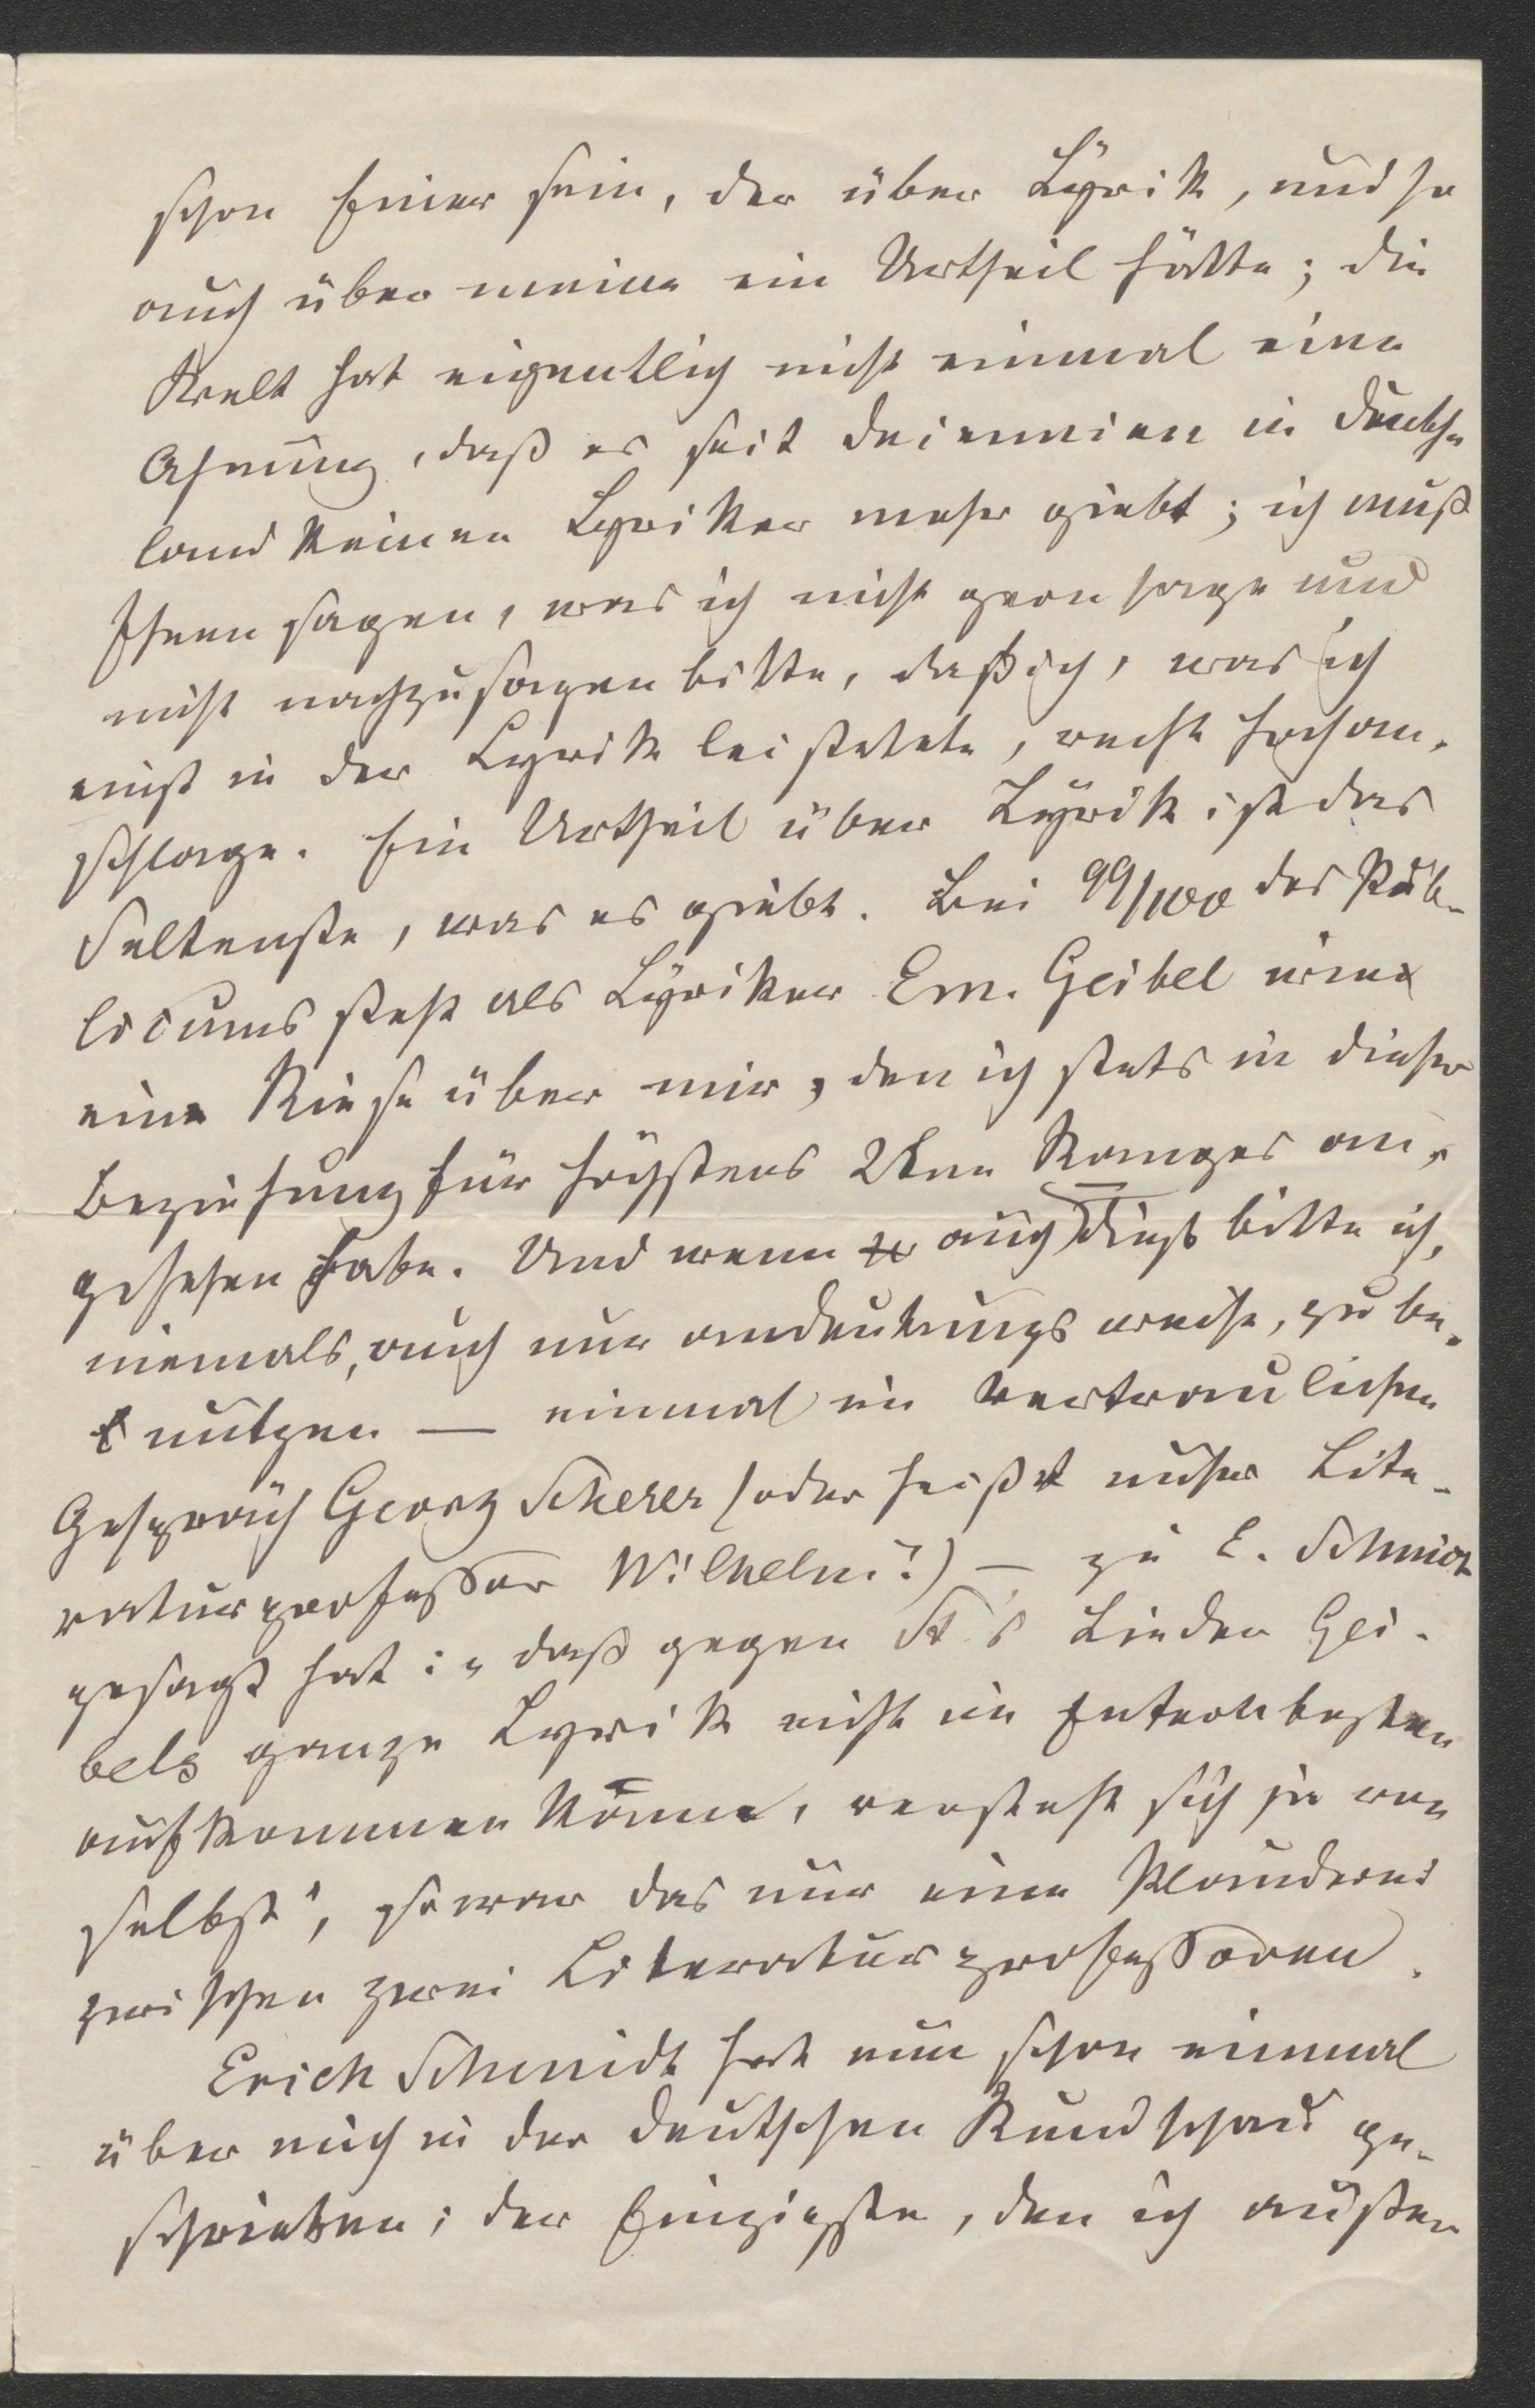 schon Einer sein, der über Lyrik, und so
auch über meine ein Urtheil hätte; die
Welt hat eigentlich nicht einmal eine
Ahnung, daß es seit Decennien in Deutsch
land keinen Lyriker mehr giebt; ich muß
Ihnen sagen, was ich nicht gern sage und
nicht nachzusagen bitte, daß ich, was ich
einst in der Lyrik leistete, recht hochan-
schlage. Ein Urtheil über Lyrik ist das
Seltenste, was es giebt. Bei 99/100 des Pub-
licums steht als Lyriker Em. Geibel
eine Riese über mir, den ich stets in dieser
Beziehung für höchstens 2ten Ranges an-
gesehen habe. Und wenn auch) dieß bitte ich,
niemals, auch nur andeutungsweise, zu be-
nutzen — einmal im vertraulichen
Gespräch Georg Scherer (oder heißt unser Lite-
raturprofessor Wilhelm?) — zu E. Schmidt
gesagt hat: „daß gegen St's Lieder Gei-
bels ganze Lyrik nicht im Entferntesten
aufkommen könne, versteht sich ja von
selbst", so war das nur eine Plauderei
zwischen zwei Literaturprofessoren.
Erich Schmidt hat nun schon einmal
über mich in der Deutschen Rundschau ge-
schrieben; der Einzigste, den ich außer